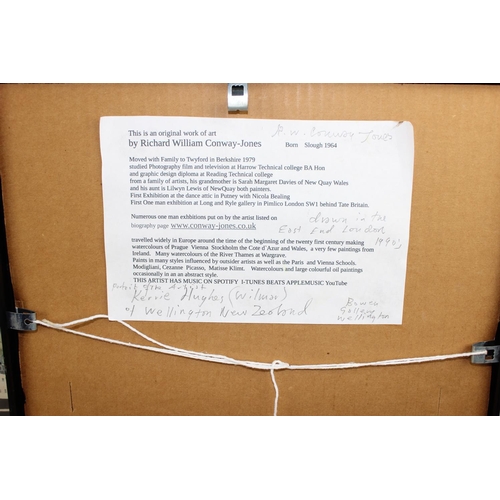 This is an original work of art
R. W. Conway Jones
by Richard William Conway-Jones Born Slough 1964
Moved with Family to Twyford in Berkshire 1979
studied Photography film and television at Harrow Technical college BA Hon
and graphic design diploma at Reading Technical college
from a family of artists, his grandmother is Sarah Margaret Davies of New Quay Wales
and his aunt is Lilwyn Lewis of NewQuay both painters.
First Exhibition at the dance attic in Putney with Nicola Bealing
First One man exhibition at Long and Ryle gallery in Pimlico London SW1 behind Tate Britain.
Numerous one man exhibitions put on by the artist listed on
drawn in the
biography page www.conway-jones.co.uk
East End London
1990s
travelled widely in Europe around the time of the beginning of the twenty first century making
watercolours of Prague Vienna Stockholm the Cote d'Azur and Wales, a very few paintings from
Ireland. Many watercolours of the River Thames at Wargrave.
Paints in many styles influenced by outsider artists as well as the Paris and Vienna Schools.
Modigliani, Cezanne Picasso, Matisse Klimt. Watercolours and large colourful oil paintings
occasionally in an abstract style.
THIS ARTIST HAS MUSIC ON SPOTIFY I-TUNES BEATS APPLEMUSIC YouTube
of the
Hughes (Wilmar)
of Wellington New Zealand
Wellington